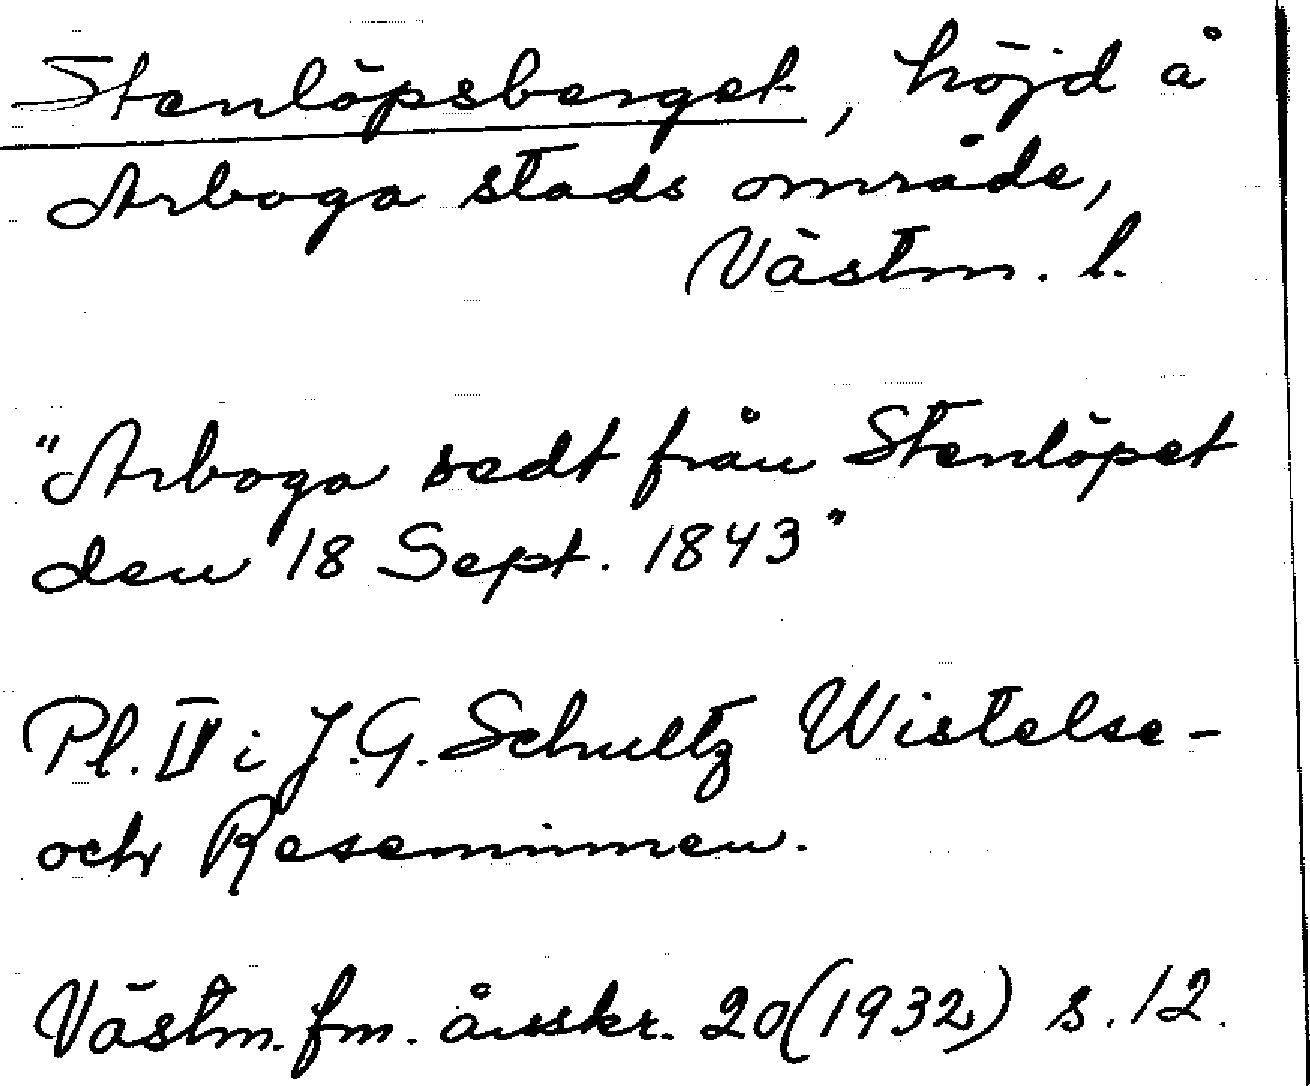 Stenlöpsberget, höjd å
Arboga stads område,
Västm. l.
"Arboga sedt från Stenlöpet
den 18 Sept. 1843"
Pl. IV i J.G. Schultz Wistelse-
och Reseminnen.
Västm. fm. årsskr. 20 (1932) s. 12.